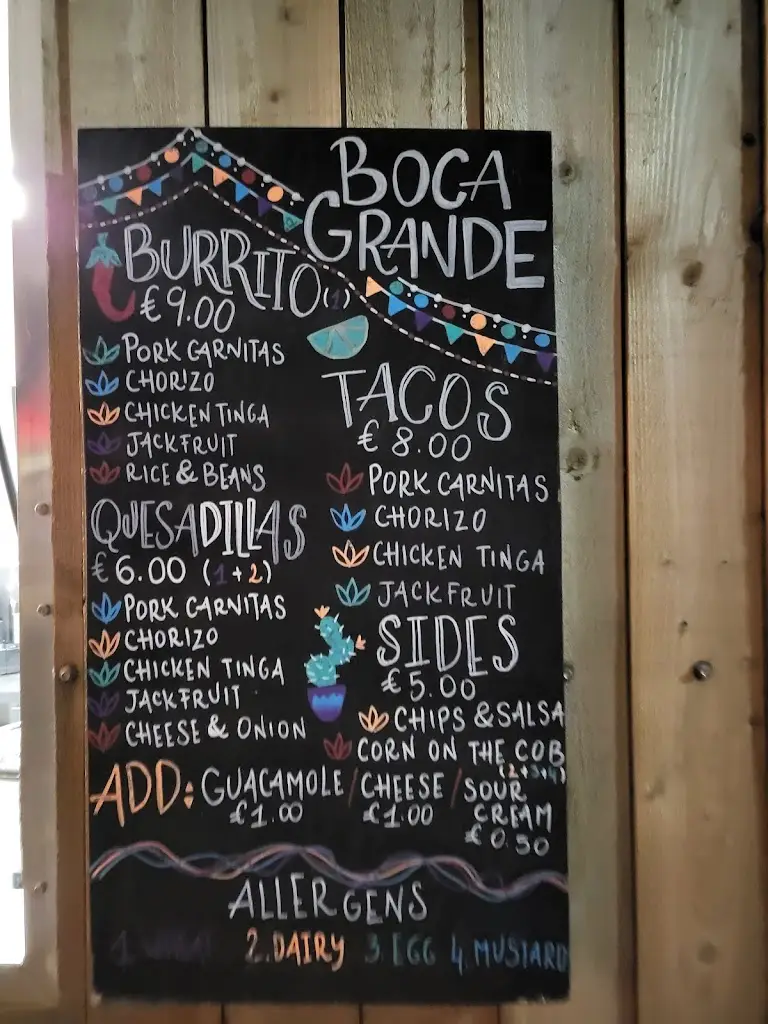 BOCA
GRANDE
BURRITO (1)
€9.00
PORK CARNITAS
CHORIZO
CHICKEN TINGA
JACKFRUIT
RICE & BEANS
QUESADILLAS
€6.00 (1+2)
PORK CARNITAS
CHORIZO
CHICKEN TINGA
JACKFRUIT
CHEESE & ONION
TACOS
€8.00
PORK CARNITAS
CHORIZO
CHICKEN TINGA
JACKFRUIT
SIDES
€5.00
CHIPS & SALSA
CORN ON THE COB
(2+3+4)
ADD: GUACAMOLE / CHEESE / SOUR CREAM
€1.00 €1.00 €0.50
ALLERGENS
1. WHEAT 2. DAIRY 3. EGG 4. MUSTARD